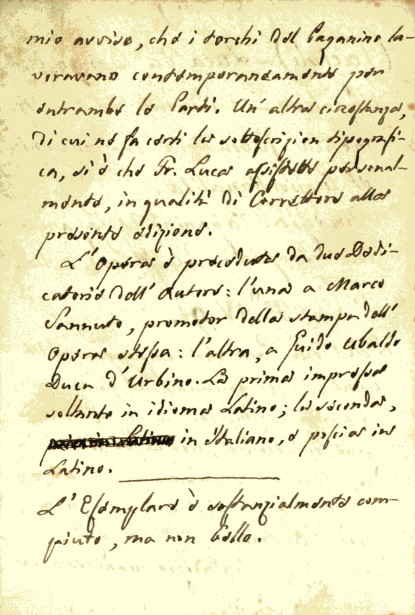 mio avviso, che i torchi del Paganino la-
voravano contemporaneamente per
entrambe le Parti. Un' altra circostanza,
di cui ne fa certi la sottoscrizion tipografi-
ca, si è che Fr. Luca assistette personal-
mente, in qualità di Correttore alla
presente edizione.
L'Opera è preceduta da due Dedi-
catorie dell' Autore: l'una a Marco
Sannuto, promotor della stampa dell'
Opera stessa: l'altra, a Guido Ubaldo
Duca d'Urbino. La prima impressa
soltanto in idioma Latino; la seconda,
in Italiano, e poscia in
Latino.
L'Esemplare è sostanzialmente com-
piuto, ma non bello.